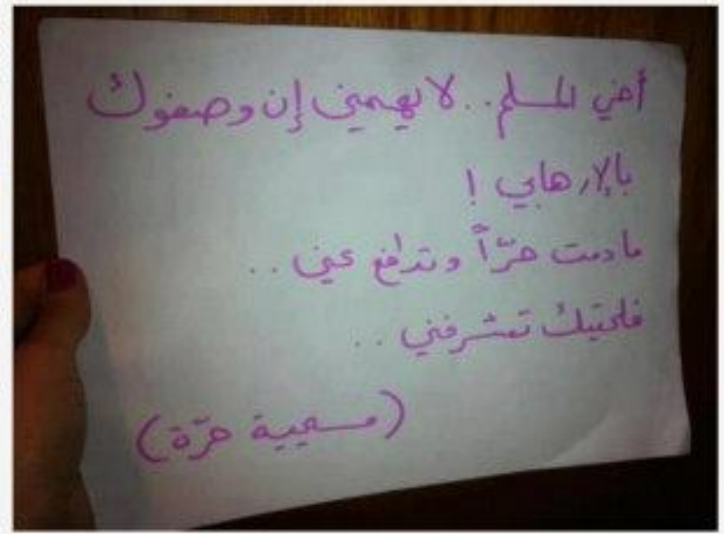 أخي المسلم.. لا يهمني إن وصفوك
بالإرهابي !
مادمت حرّاً وتدافع عني ..
فلحيتك تشرفني ..
(مسيحية حرّة)